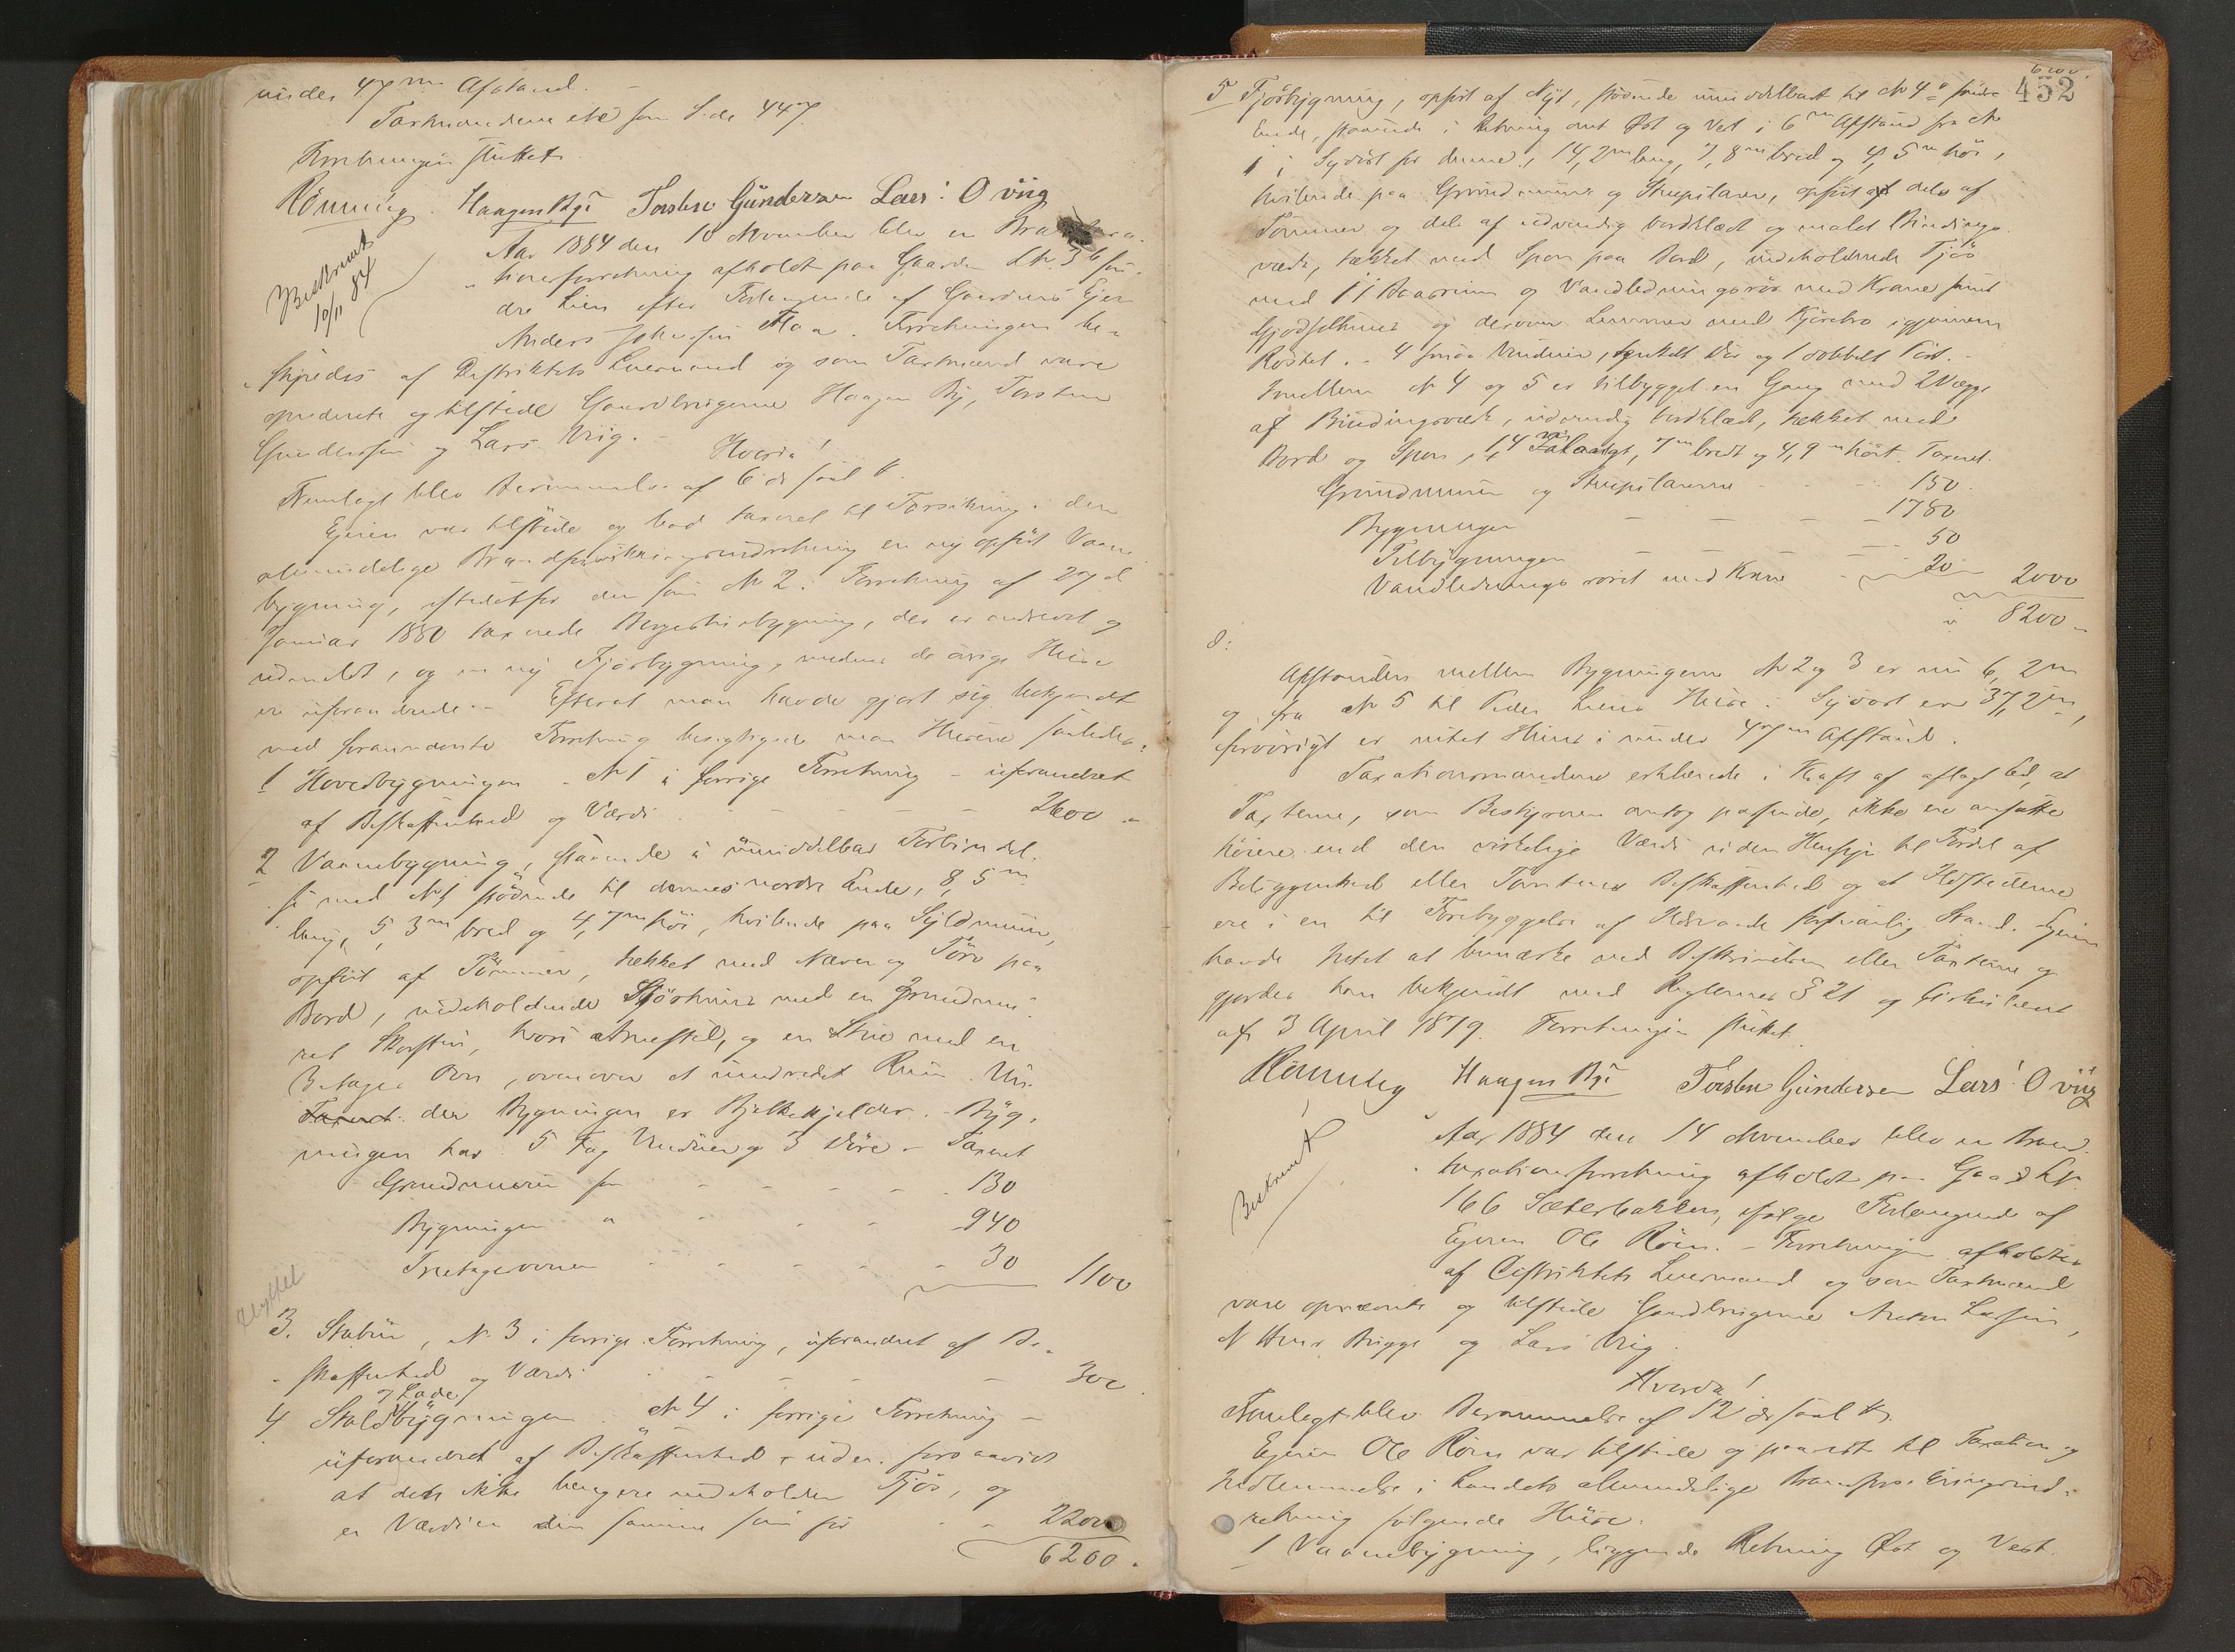 under 47 m Afstand. –
Taxtmændene etc som Side 447.
Forretningen sluttet.
Rönning. Haagen By Torsten Gundersen Lars: O Viig
Beskrevet
10/11 84
Aar 1884 den 10 November blev en Brandtaxa-
tionsforretning afholdt paa Gaarden LNr 36 sön-
dre Lien efter Forlangende af Gaardens Eier
Anders Johnsen Moa. Forretningen be-
styredes af Distriktets Lensmand og som Taxtmænd vare
opnævnte og tilstede Gaardbrugerne Haagen By, Torsten
Gundersen og Lars Viig. –
Hvorda!
Fremlagt blev Berammelse af 6 ds saal.
Eieren var tilstede og bad taxeret til Forsikring i den
almindelige Brandforsikringsindretning en ny opført Vaane-
bygning, istedetfor den som № 2 i Forretning af 27d
Januar 1880 taxerede Borgestuebygning, der er nedrevet og
udmeldt, og en ny Fjösbygning, medens de övrige Huse
ere uforandrede. – Efterat man havde gjort sig bekjendt
med forannævnte Forretning besigtigede man Husene saaledes:
1 Hovedbygningen – № 1 i forrige Forretning – uforandret
af Beskaffenhed og Værdi – – – – 2600 „
2 Vaanebygning, staaende i umiddelbar Forbindel-
se med № 1 stödende til dennes nordre Ende, 8,5 m
lang, 5,3 m bred og 4,7 m høi, hvilende paa Syldmuur,
opført af Tömmer, tækket med Næver og Törv paa
Bord, indeholdende Kjökken med en Grundmu-
ret Skorsten, hvori Arnested, og en Stue med en
3 Etages Ovn, ovenover et uindredet Rum. Un-
der Bygningen er Bjelkekjelder. – Byg-
ningen har 5 Fag Vinduer og 3 Döre – Taxeret
Grundmuren for – – – – 130
Bygningen „ – – – 940
Treetagesovnen – – – – 30 1100
Flyttet
3. Stabur, № 3 i forrige Forretning, uforandret af Be-
skaffenhed og Værdi – – – – 300
og Lade
4 Staldbygningen № 4 i forrige Forretning –
uforandret af Beskaffenhed, uden forsaavidt
at den ikke længere indeholder Fjös, og
er Værdien den samme som för – – 2200
6200.
6200.
452
5 Fjösbygning, opført af Nyt, stödende umiddelbart til № 4s søndre
Ende, staaende i Retning omt Øst og Vest i 6 m Afstand fra №
1 i Sydöst for denne, 14,2 m lang, 7,8 m bred og 4,5 m høi,
hvilende paa Grundmuur og Steenpilarer, opført dels af
Tömmer og dels af udvendig bordklædt og malet Bindings-
værk, tækket med Spon paa Bord, indeholdende Fjös
med 11 Baasrum og Vandledningsrör med Krane samt
Gjödselhuus og derover Lemmer med Kjörebro igjennem
Röstet. – 4 smaa Vinduer, 1 enkelt Dör og 1 dobbelt Port. –
Imellem № 4 og 5 er tilbygget en Gang med 2 Vægge
af Bindingsværk, udvendig bordklædt, tækket med
Bord og Spon, 1,4 m langt, 7 m bredt og 4,9 m høit. Taxeret.
Grundmuren og Steenpilarerne – – – 150
Bygningen – – – – 1780
Tilbygningen – – – – 50
Vandledningsröret med Krane – 20 – 2000
8200 –
Afstanden mellem Bygningerne № 2 og 3 er nu 6,2 m
og fra № 5 til Peder Liens Huse i Sydost er 37,2 m,
forövrigt er intet Huus i under 47 m Afstand.
Taxationsmændene erklærede i Kraft af aflagt Ed, at
Taxterne, som Bestyreren antog passende, ikke ere ansatte
höiere end den virkelige Værdi uden Hensyn til Fordel af
Beliggenhed eller Tomtens Beskaffenhed og at Ildstederne
ere i en til Forebyggelse af Ildsvaade forsvarlig Stand. Eieren
havde Intet at bemærke ved Beskrivelsen eller Taxterne og
gjordes han bekjendt med Reglernes § 21 og Cirkulæret
af 3 April 1879. Forretningen sluttet.
Rönning Haagen By Torsten Gundersen Lars: O Viig
Beskrevet
Aar 1884 den 14 November blev en Brand-
taxationsforretning afholdt paa Gaard LNr
166 Sæterbakken, ifölge Forlangende af
Eieren Ole Röen. – Forretningen afholdtes
af Distriktets Lensmand og som Taxtmænd
vare opnævnte og tilstede Gaardbrugerne Anton Larsen,
Brygge og Lars Viig.
Hvorda!
Fremlagt blev Berammelse af 12 ds saal.
Eieren Ole Röen var tilstede og paaviste til Taxation og
Indlemmelse i Landets almindelige Brandforsikringsind-
retning fölgende Huse:
1 Vaanebygning, liggende Retning Øst og Vest.